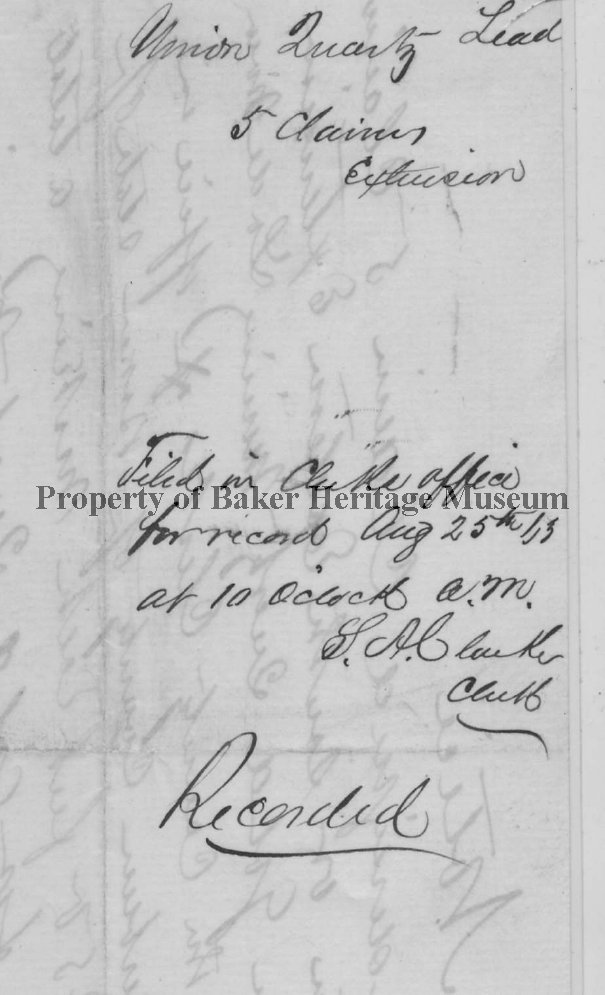 Union Quartz Lead
5 Claims
Extension
Filed in Clerks office
Property of Baker Heritage Museum
for record Aug 25th
at 10 Oclock A.M.
S. A. Clarke
Clerk
Recorded